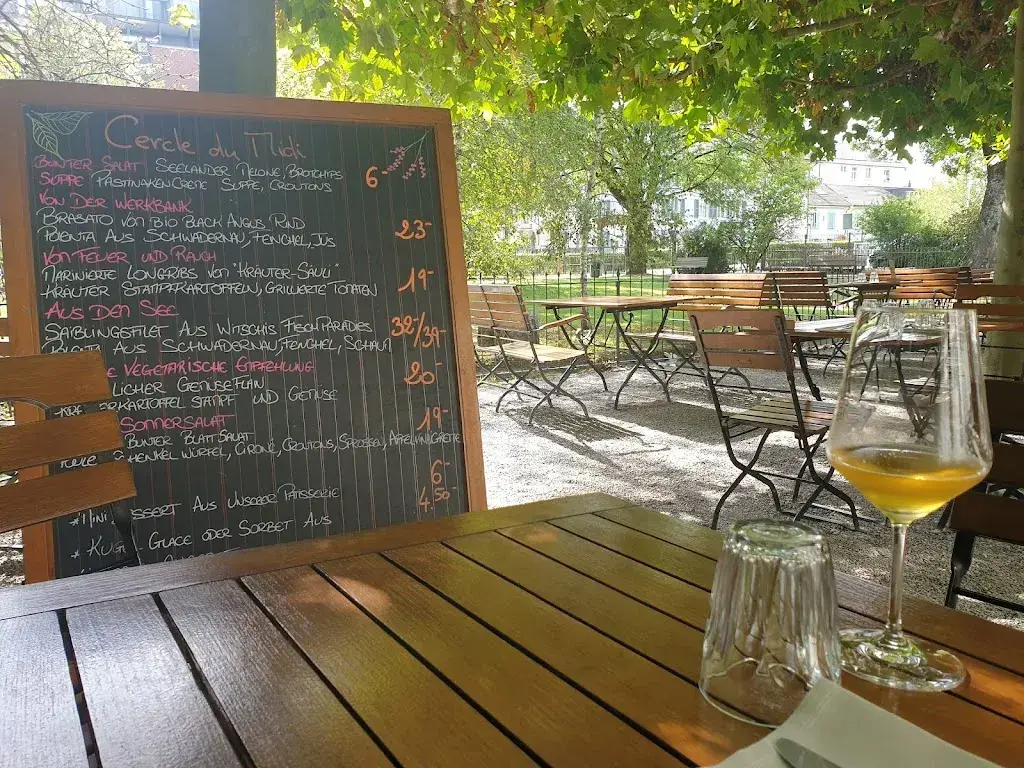 Cercle du Midi
BUNTER SALAT SEELANDER MELONE, BROTCHIPS
SUPPE PASTINAKENCREME SUPPE, CROUTONS 6-
VON DER WERKBANK
BRASATO VON BIO BLACK ANGUS RIND 23-
POLENTA AUS SCHWADERNAU, FENCHEL, JUS
VON FEUER UND RAUCH
MARINIERTE LONGRIBS VON "KRÄUTER-SÄULI" 19-
KRÄUTER STAMPFKARTOFFELN, GRILLIERTE TOMATEN
AUS DEN SEE
SAIBLINGSFILET AUS WITSCHIS FISCHPARADIES 32-/39-
POLENTA AUS SCHWADERNAU, FENCHEL, SCHAUM
VEGETARISCHE EMPFEHLUNG
LICHER GEMÜSEFLAN 20-
KARTOFFEL STAMPF UND GEMÜSE
SOMMERSALAT 19-
BUNTER BLATTSALAT
WÜRFEL, CROUTONS, SPROSSEN, APFELVINAIGRETTE
6-
*MINI DESSERT AUS UNSERER PATISSERIE 4.50
* KUGEL GLACE ODER SORBET AUS